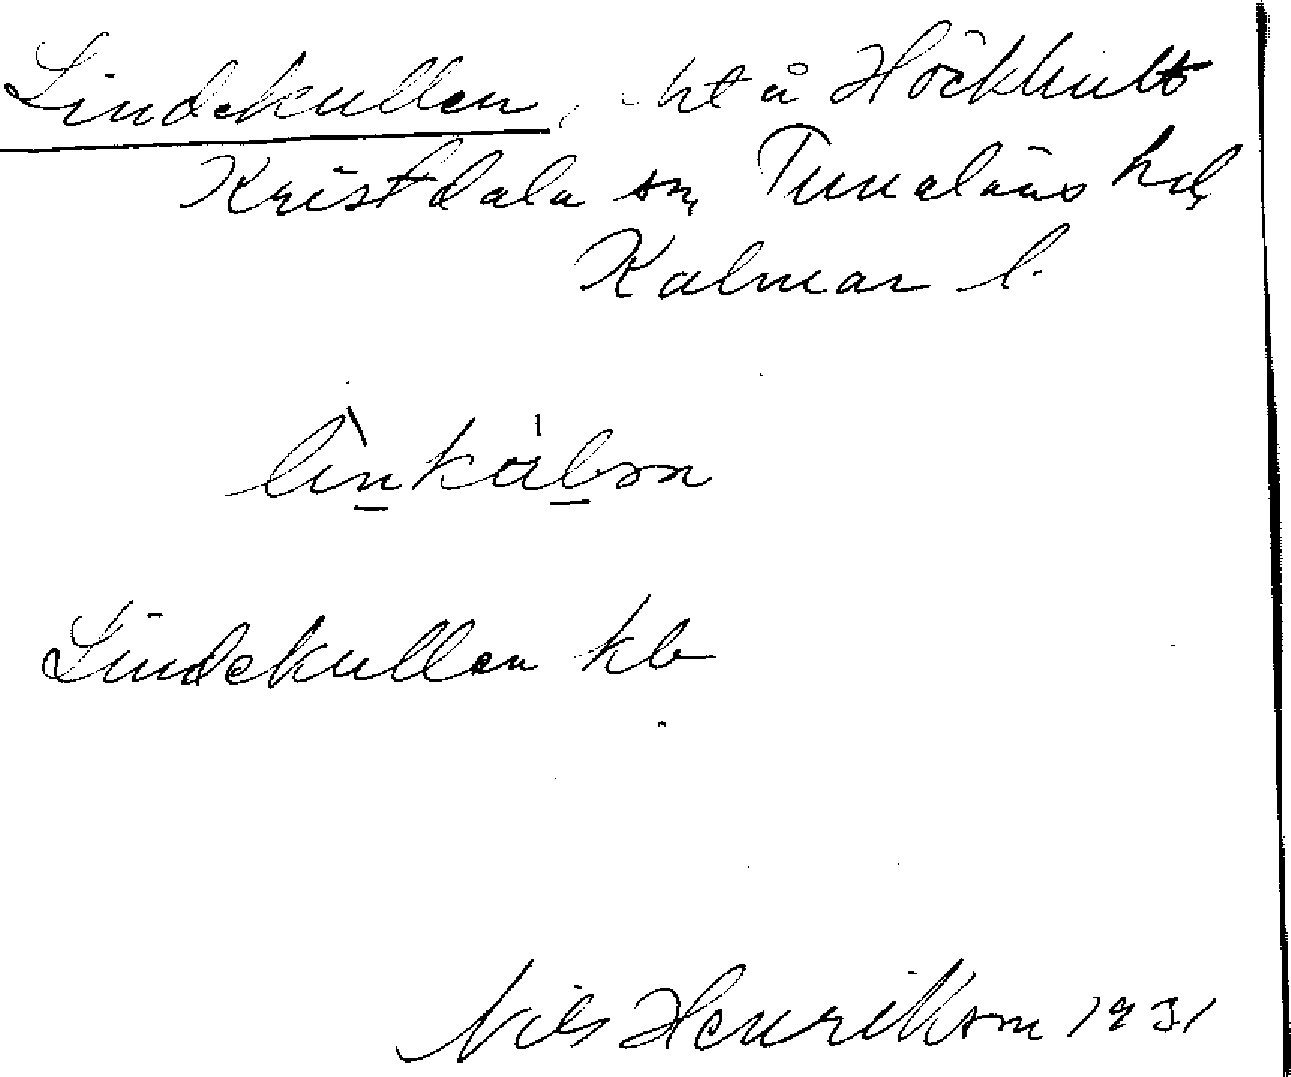 Lindekullen, ht å Höckhult
Kristdala sn, Tunaläns hd,
Kalmar l.
Lindekullen kb
Nils Henrikson 1931